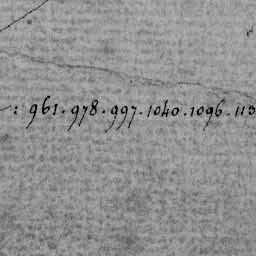 : 961 . 978 . 997 . 1040 . 1096 . 113